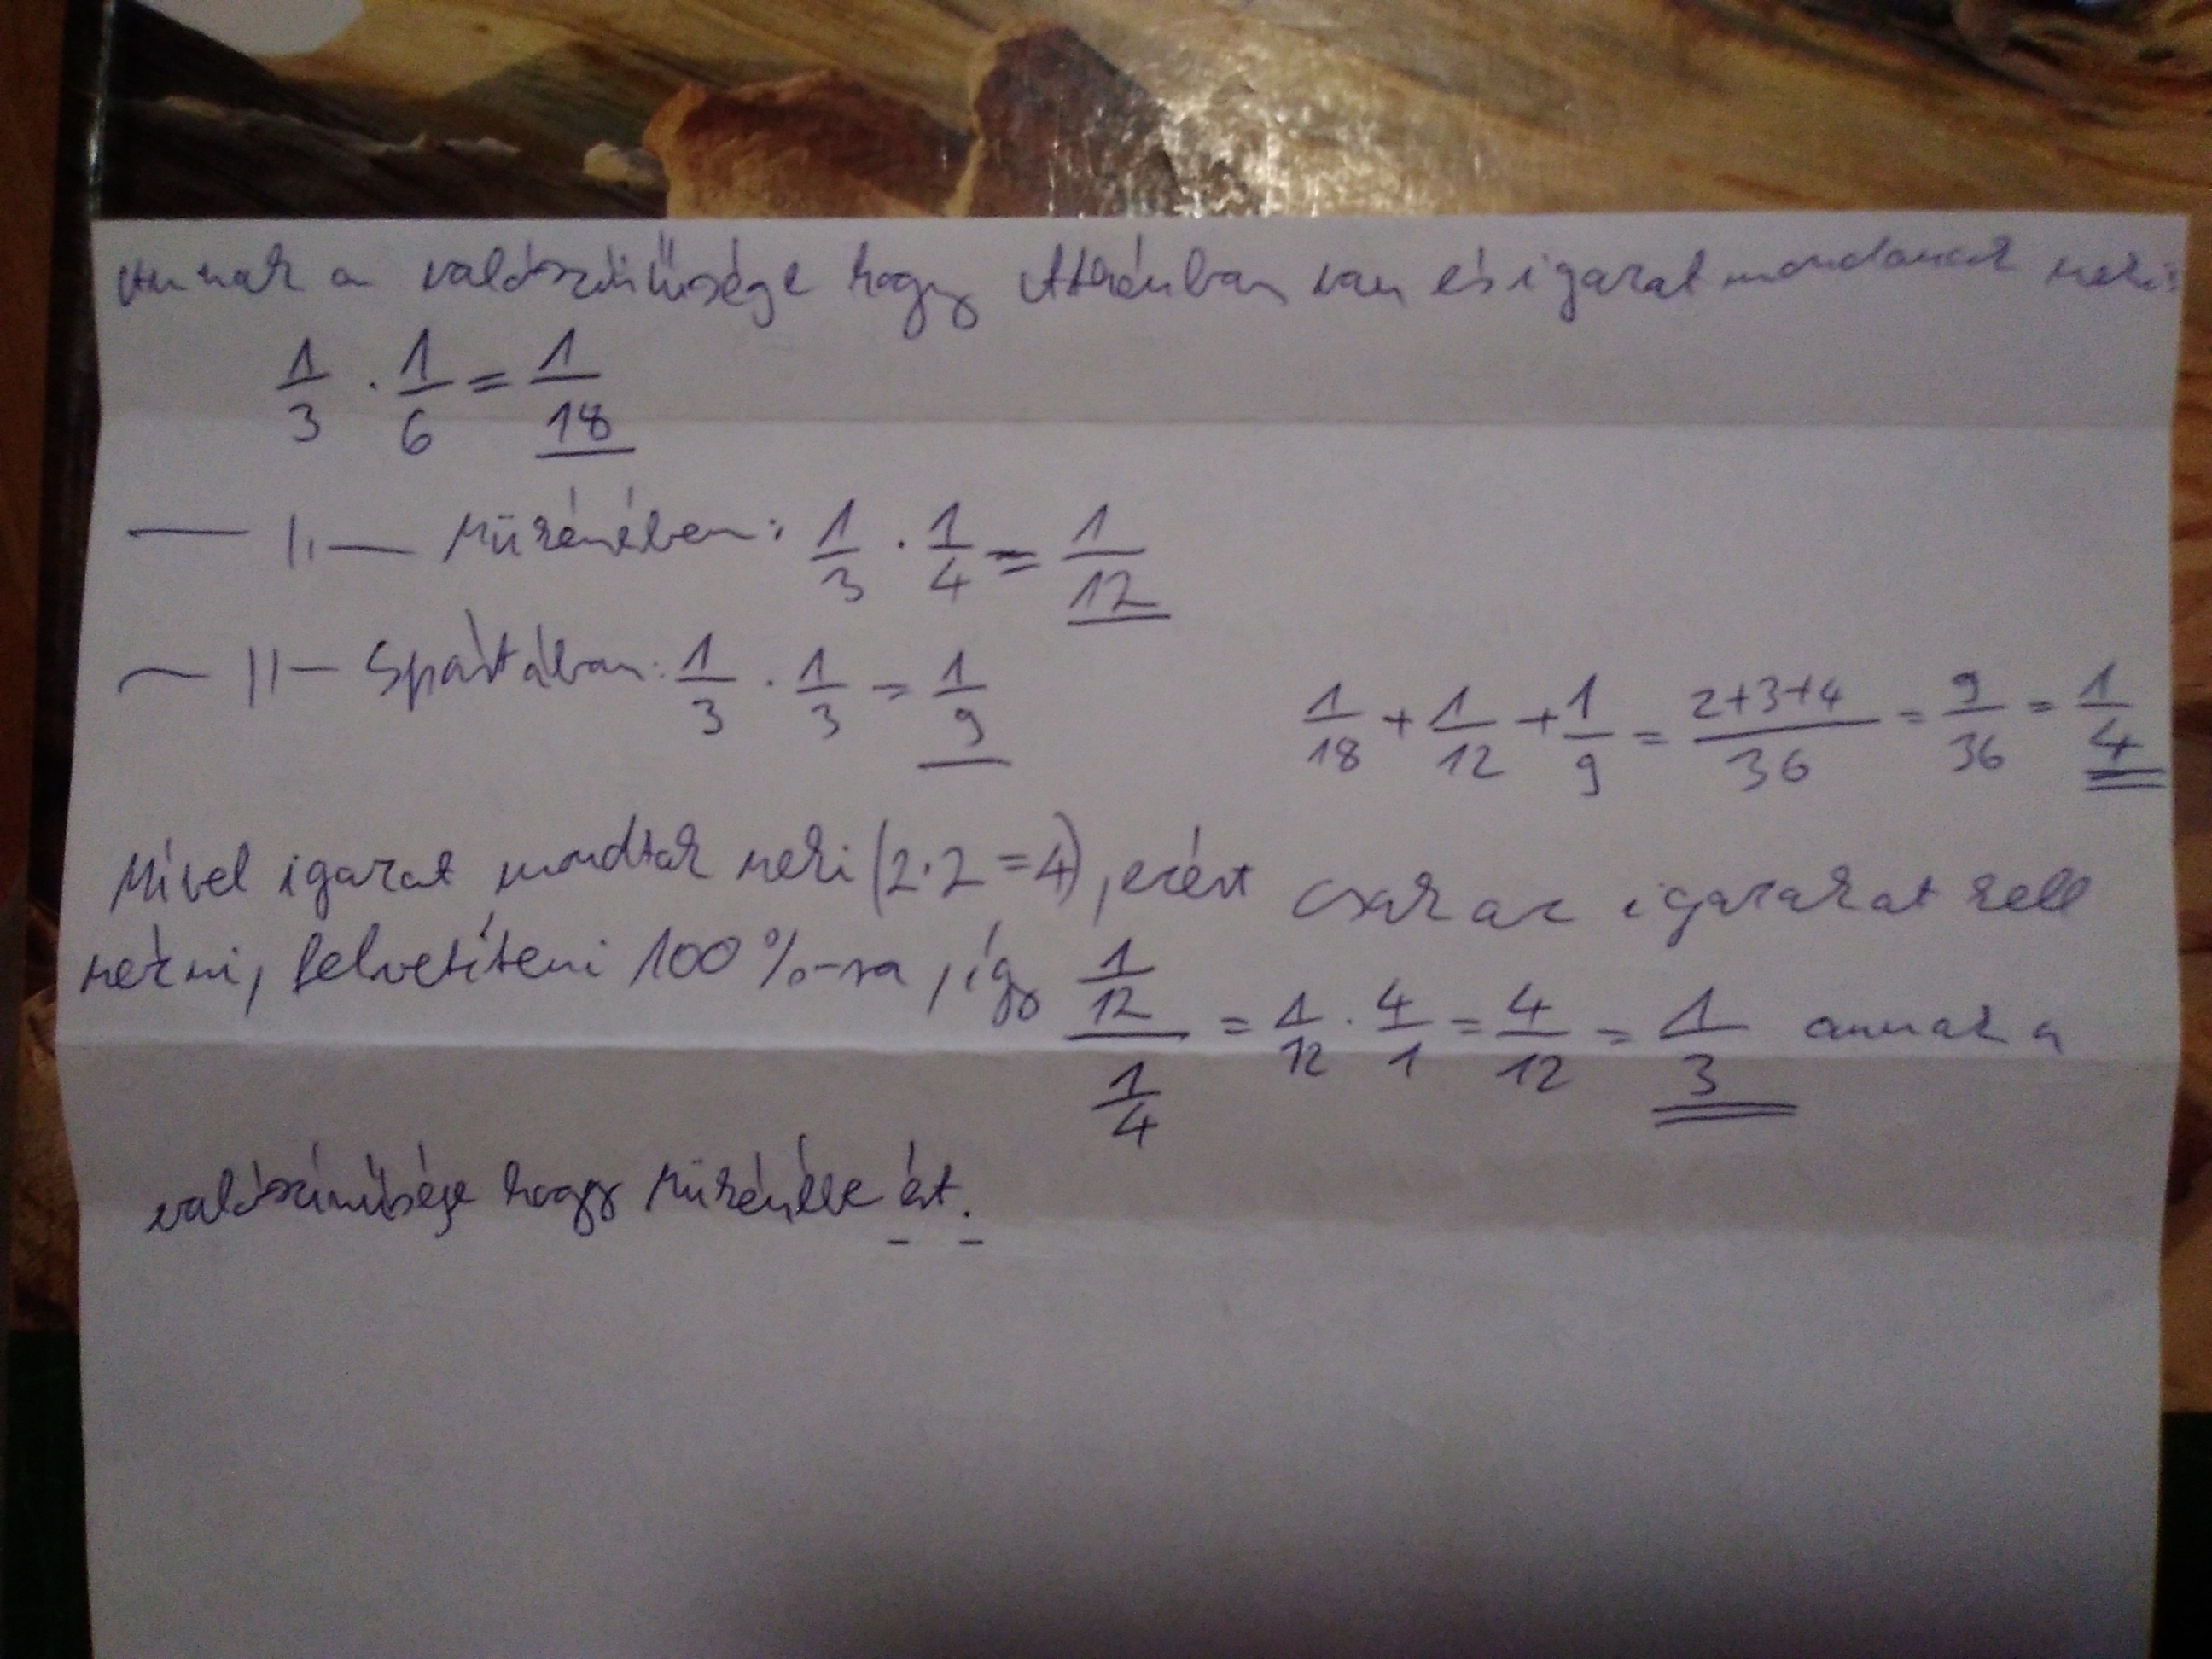 Annak a valószínűsége hogy Athénban van és igazat mondanak neki:
1/3 · 1/6 = 1/18
— 11 — Mükénében: 1/3 · 1/4 = 1/12
— 11 — Spártában: 1/3 · 1/3 = 1/9
1/18 + 1/12 + 1/9 = (2+3+4)/36 = 9/36 = 1/4
Mivel igazat mondtak neki (2·2=4), ezért csak az igazakat kell
nézni, felvetíteni 100%-ra, így (1/12)/(1/4) = 1/12 · 4/1 = 4/12 = 1/3 annak a
valószínűsége hogy Mükénébe ért.